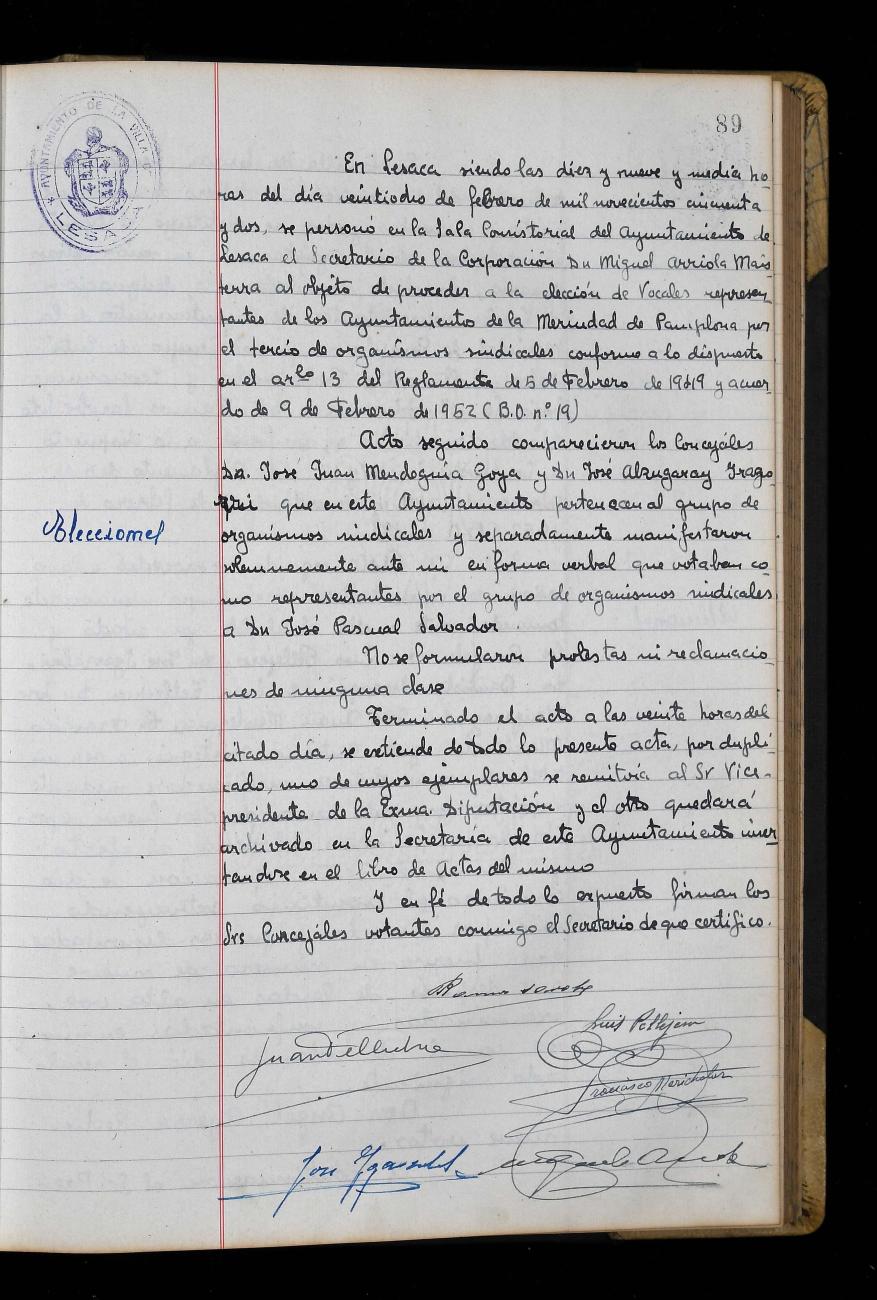 89
AYUNTAMIENTO DE LA VILLA DE
LESACA
En Lesaca siendo las diez y nueve y media ho-
ras del día veintiocho de febrero de mil novecientos cincuenta
y dos, se personó en la Sala Consistorial del Ayuntamiento de
Lesaca el Secretario de la Corporación Dn Miguel Arriola Mais
terra al objeto de proceder a la elección de Vocales represen
tantes de los Ayuntamiento de la Merindad de Pamplona por
el tercio de organísmos sindicales conforme a lo dispuesto
en el arlo 13 del Reglamento de 5 de Febrero de 1949 y acuer-
do de 9 de Febrero de 1952 (B.O. n.º 19)
Acto seguido comparecieron los Concejáles
Dn. José Juan Mendeguía Goya y Dn José Alzugaray Irago-
que en este Ayuntamiento pertenecen al grupo de
Elecciones
organísmos sindicales y separadamente manifestaron
solemnemente ante mi en forma verbal que votaban co-
mo representantes por el grupo de organismos sindicales
a Dn José Pascual Salvador.
No se formularon protestas ni reclamacio-
nes de ninguna clase
Terminado el acto a las veinte horas del
citado día, se extiende de todo lo presente acta, por dupli-
cado, uno de cuyos ejemplares se remitiría al Sr Vice-
presidente de la Exma. Diputación y el otro quedará
archivado en la Secretaría de este Ayuntamiento inser
tandose en el libro de Actas del mismo
Y en fé de todo lo expuesto firman los
Srs Concejáles votantes conmigo el Secretario de que certifico.
Luis
Juan Telletxea
Francisco
Jose